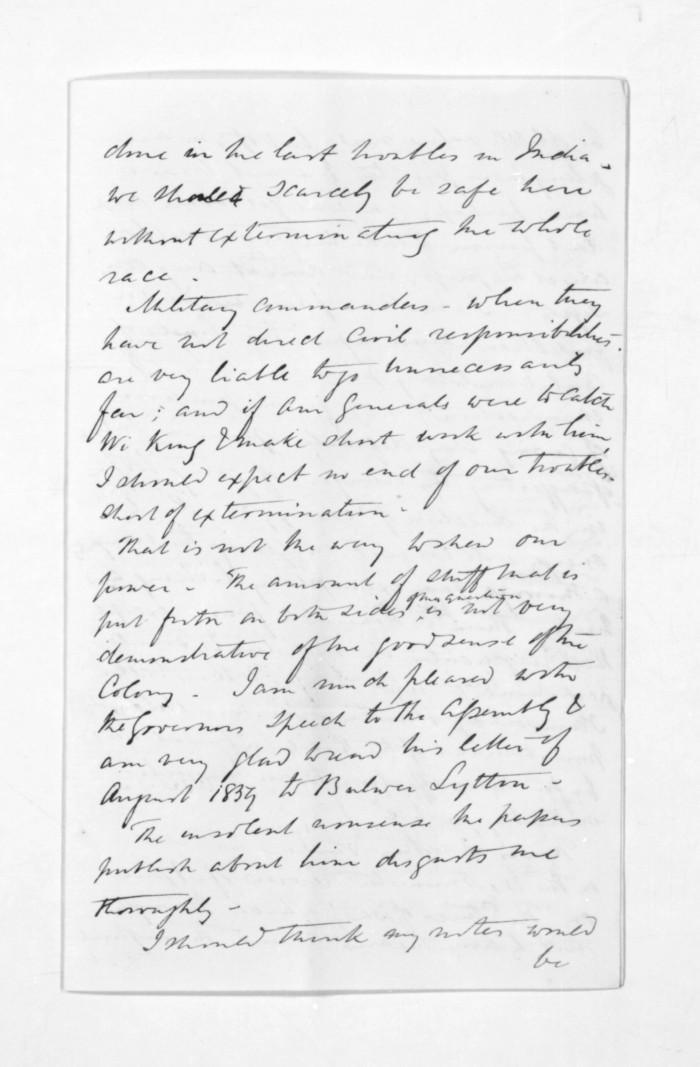 done in the last troubles in India -
we should scarcely be safe here
without exterminating the whole
race.
Military commanders - when they
have not direct civil responsibilities -
are very liable to go unnecessarily
far; and if our generals were to catch
Wi King & make short work with him,
I should expect no end of our troubles
short of extermination.
That is not the way to shew our
power - The amount of stuff that is
put forth on both sides of the question is not very
demonstrative of the good sense of the
Colony - I am much pleased with
the Governors speech to the Assembly &
am very glad to read his letter of
August 1859 to Bulwer Lytton -
The insolent nonsense the papers
publish about him disgusts me
thoroughly -
I should think my notes would
be